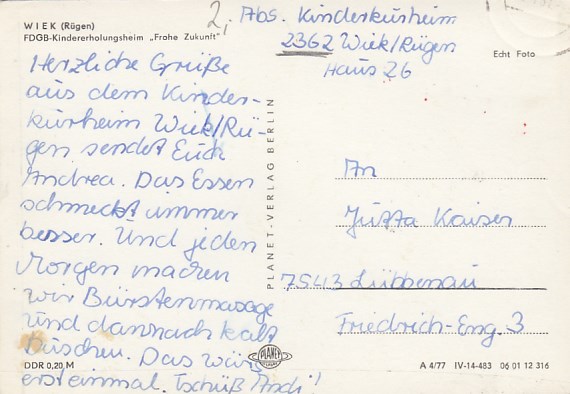 WIEK (Rügen)
FDGB-Kindererholungsheim „Frohe Zukunft"
2, Abs. Kinderkurheim
2362 Wiek/Rügen
Haus 26
Echt Foto
Herzliche Grüße
aus dem Kinder-
kurheim Wiek/Rü-
gen sendet Euch
Andrea. Das Essen
schmeckt immer
besser. Und jeden
Morgen machen
wir Bürstenmasage
und dannach kalt
Duschen. Das wärs
ersteinmal. Tschüß Andi!
PLANET-VERLAG BERLIN
An
Jutta Kaiser
7543 Lübbenau
Friedrich-Eng. 3
DDR 0,20 M
PLANET
A 4/77 IV-14-483 06 01 12 316